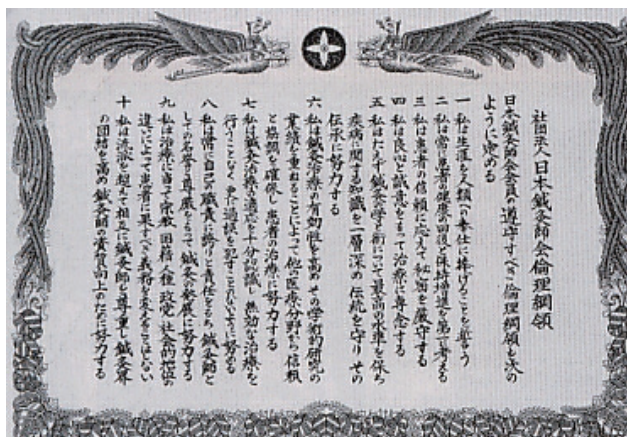 社団法人日本鍼灸師会倫理綱領
日本鍼灸師会会員の遵守すべき倫理綱領を次の
ように定める
一 私は生涯を人類への奉仕に捧げることを誓う
二 私は常に患者の健康の回復と保持増進を第一に考える
三 私は患者の信頼に応えて秘密を厳守する
四 私は良心と誠意をもって治療に専念する
五 私はたえず鍼灸学と術について最高の水準を保ち
疾病に関する知識を一層深め 伝統を守り その
伝承に努力する
六 私は鍼灸治療の有効性を高め その学術的研究の
業績を重ねることによって 他の医療分野から信頼
と協調を確保し 患者の治療に努力する
七 私は鍼灸治療の適応を十分認識し 無効な治療を
行うことなく また過誤を犯すことがないように努める
八 私は常に自己の職責に誇りと責任をもち 鍼灸師と
しての名誉と尊厳をもって 鍼灸の発展に努力する
九 私は治療に当って 宗教 国籍 人種 政党 社会的地位の
違いによって 患者に果すべき義務を変えることはない
十 私は流派を超えて相互に鍼灸師を尊重し 鍼灸界
の団結を高め 鍼灸師の資質向上のために努力する